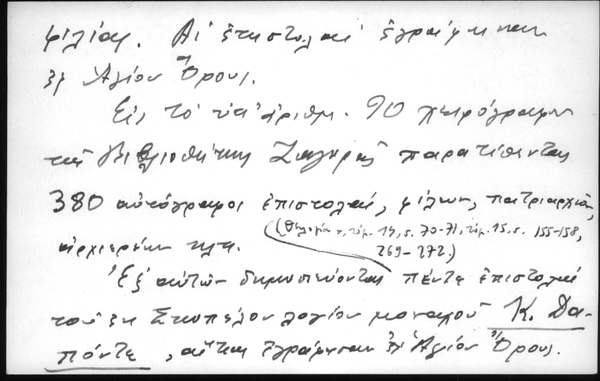 φιλίαν. Αἱ ἐπιστολαὶ ἐγράφησαν
ἐξ Ἁγίου Ὄρους.
Εἰς τὸ ὑπ' ἀριθμ. 90 χειρόγραφον
τῆς Βιβλιοθήκης Ζαγορᾶς παρατίθενται
380 αὐτόγραφοι ἐπιστολαί, φίλων, πατριαρχῶν,
ἀρχιερέων κλπ.
(τόμ. 14, σ. 70-71, τόμ. 15, σ. 155-158,
269-272.)
Ἐξ αὐτῶν δημοσιεύονται πέντε ἐπιστολαὶ
τοῦ ἐκ Σκοπέλου λογίου μοναχοῦ Κ. Δα-
πόντε, αἵτινες ἐγράφησαν ἐξ Ἁγίου Ὄρους.